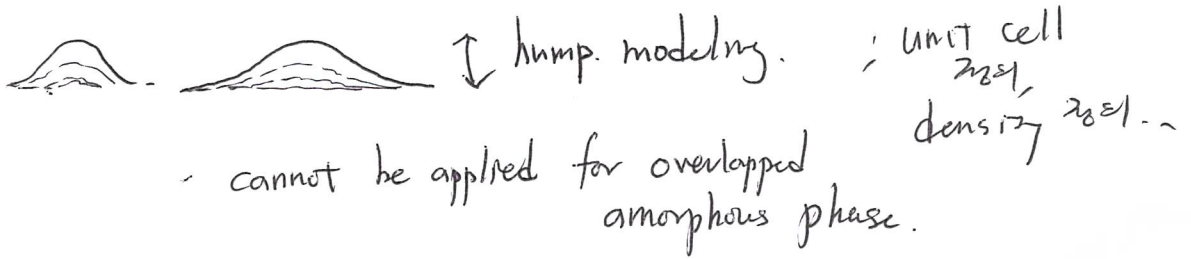 hump. modeling.
; unit cell
정의,
density 정의..
- cannot be applied for overlapped
amorphous phase.